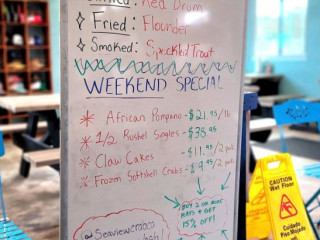 Red Drum
✧ Fried: Flounder
✧ Smoked: Speckled Trout
WEEKEND SPECIAL
* African Pompano - $21.95/lb
* 1/2 Bushel Singles - $38.95
* Claw Cakes - $11.95/2 pack
* Frozen Softshell Crabs - $9.95/2 pack
BUY 2 OR MORE
PACKS & GET
15% OFF!
@Seaviewcrabco
CAUTION
Wet Floor
Cuidado
Piso Mojado